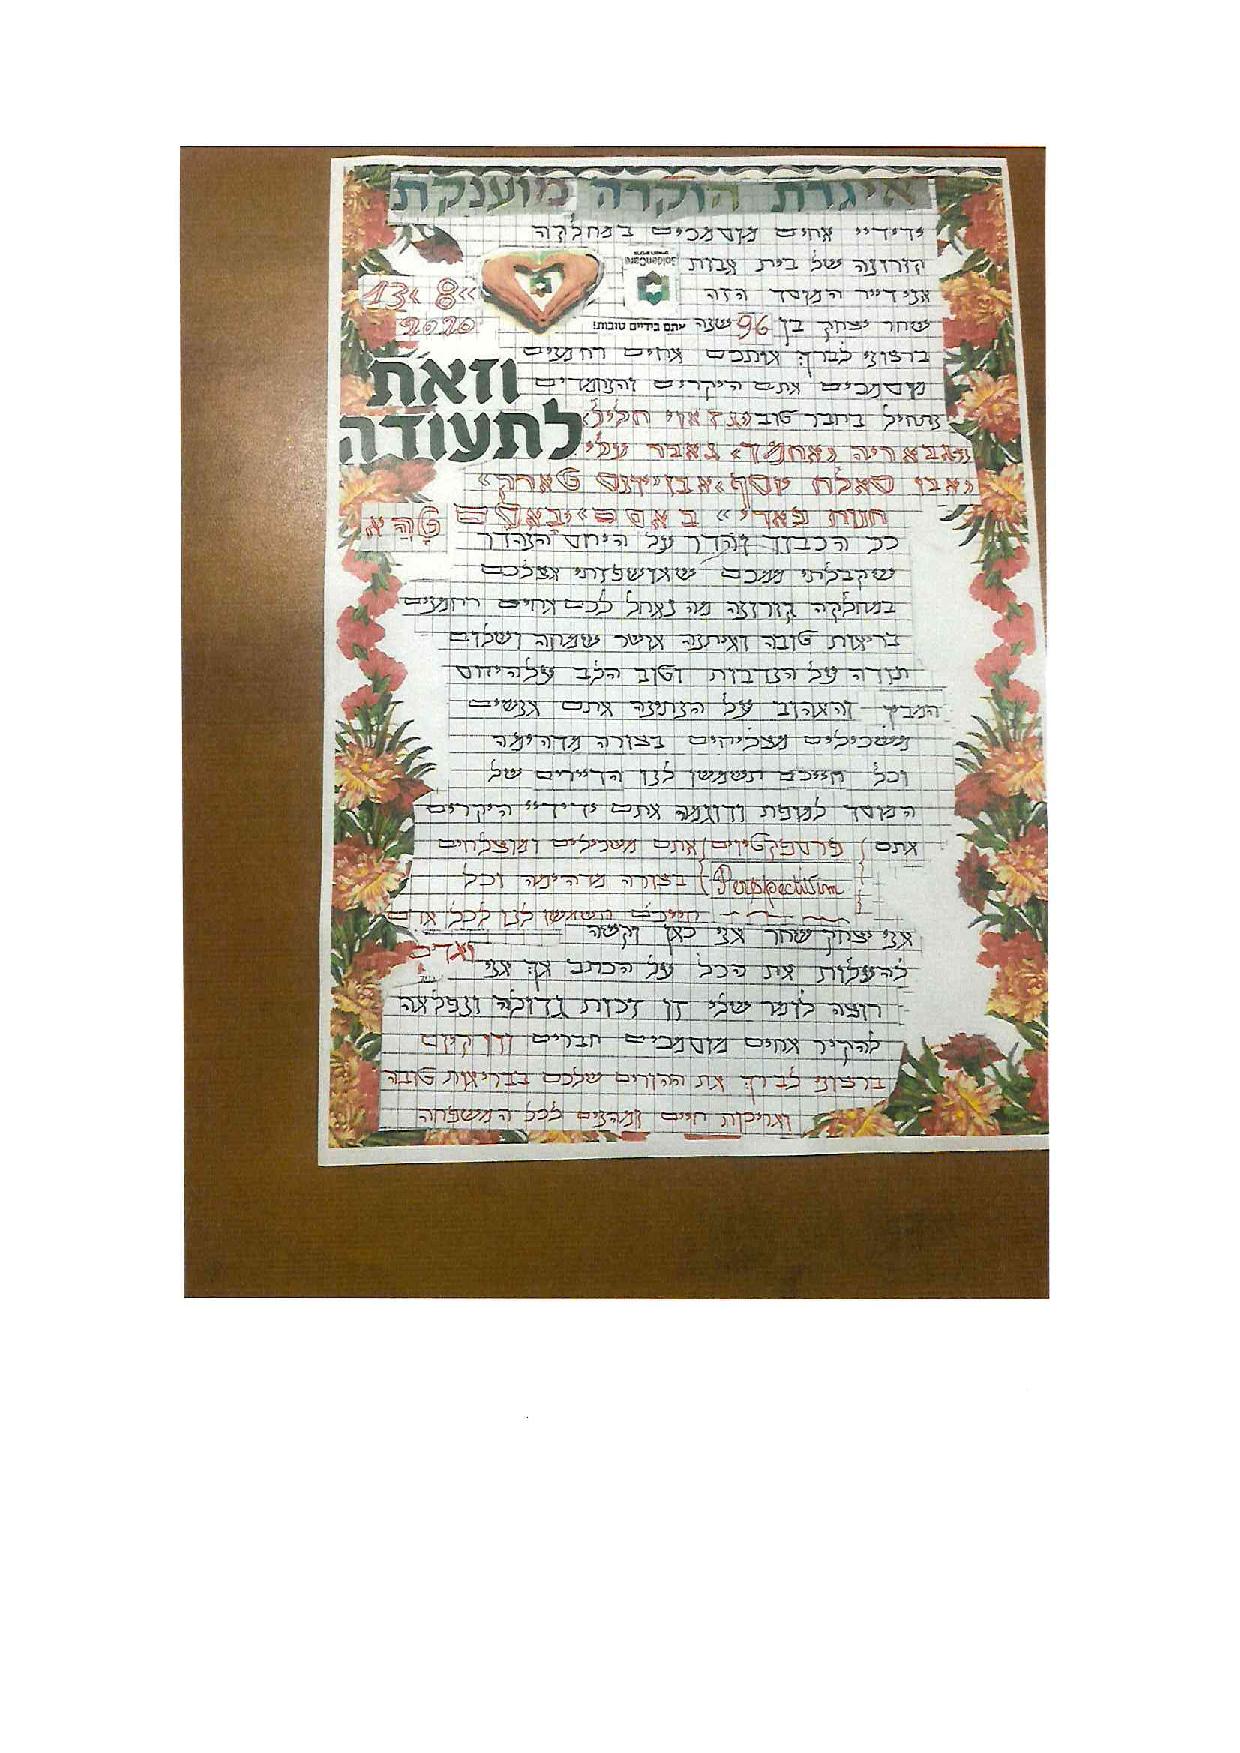 איגרת הוקרה מוענקת
ידידיי אחים מוסמכים במחלקה
קורונה של בית אבות
GoldenCare
אני דייר המוסד הזה
13 8
2020
שחר יצחק בן 96 שנה
אתם בידיים טובות!
ברצוני לברך אותכם אחים רחמנים
וזאת
מוסמכים אתם היקרים והנחמדים
לתעודה
נתחיל בחבר טוב
«אחמד» גאבר עלי
כל הכבוד והדר על היחס הנהדר
שקבלתי ממכם שאושפזתי אצלכם
במחלקה קורונה מה נאחל לכם אחים רחמנים
בריאות טובה ואיתנה אושר שמחה ושלום
תודה על הנדבות וטוב הלב על היחס
המבין והאהוב על הנתינה אתם אנשים
משכילים מצליחים בצורה מדהימה
וכל חייכם תשמשו לנו הדיירים של
המוסד למופת ודוגמה אתם ידידיי היקרים
אתם (פרספקטיוים) אתם משכילים ומוצלחים
בצורה מדהימה וכל
חייכם תשמשו לנו לכל אדם
אני יצחק שחר אני כאן וקשה
ואדים
להעלות את הכל על הכתב אך אני
רוצה לומר שלי זו זכות גדולה ונפלאה
להקיר אחים מוסמכים חברים
ברצוני לברך את ההורים שלכם בבריאות טובה
ואריכות חיים ומהנים לכל המשפחה